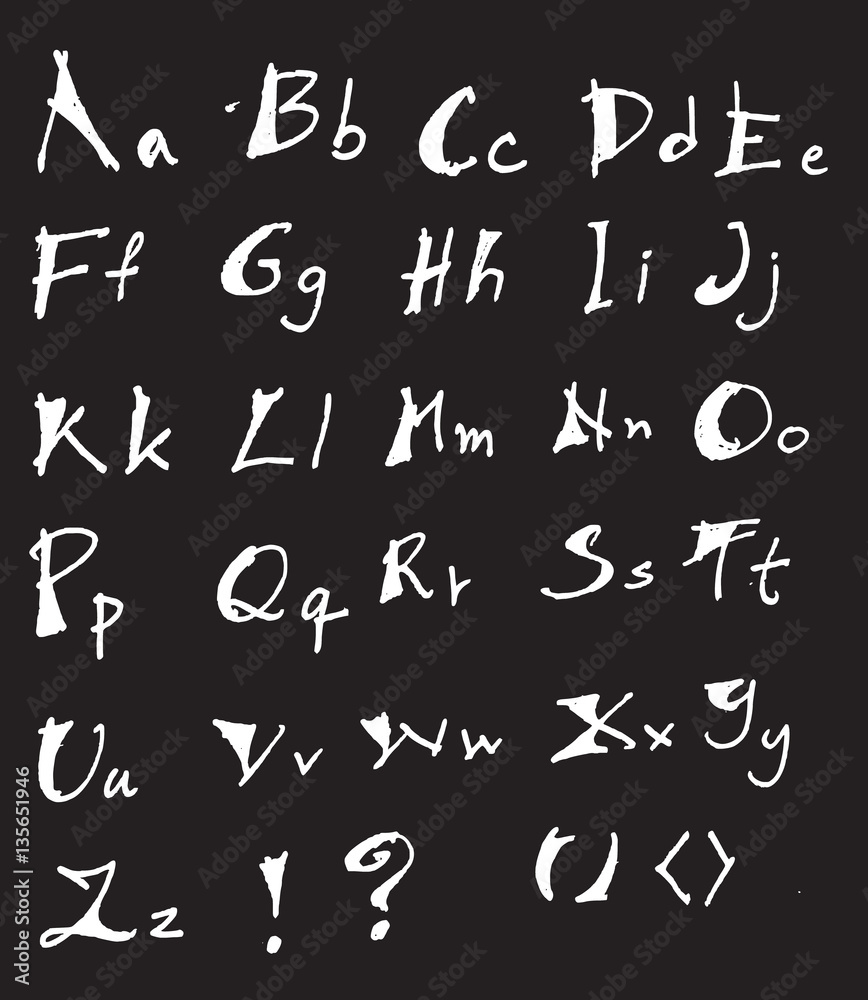 Aa Bb Cc Dd Ee
Ff Gg Hh Ii Jj
Kk Ll Mm Nn Oo
Pp Qq Rr Ss Tt
Uu Vv Ww Xx Yy
Zz ! ? () <>
Adobe Stock | #135651946